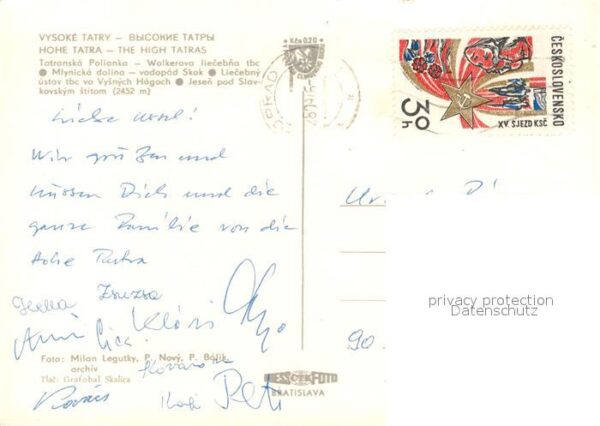 VYSOKÉ TATRY – ВЫСОКИЕ ТАТРЫ
HOHE TATRA – THE HIGH TATRAS
Tatranská Polianka – Wolkerova liečebňa tbc
● Mlynická dolina – vodopád Skok ● Liečebný
ústav tbc vo Vyšných Hágoch ● Jeseň pod Slav-
kovským štítom (2452 m)
Kčs 0,20
ČESKOSLOVENSKO
30 h
XV. SJEZD KSČ
Wir grüßen und
küssen Dich und die
ganze Familie von die
Hohe Tatra
Zsuzsa
Klári
90.
Foto: Milan Legutky, P. Nový, P. Bálik,
archív
Tlač: Grafobal Skalica
Kovács
Peti
PRESSFOTO
BRATISLAVA
privacy protection
Datenschutz